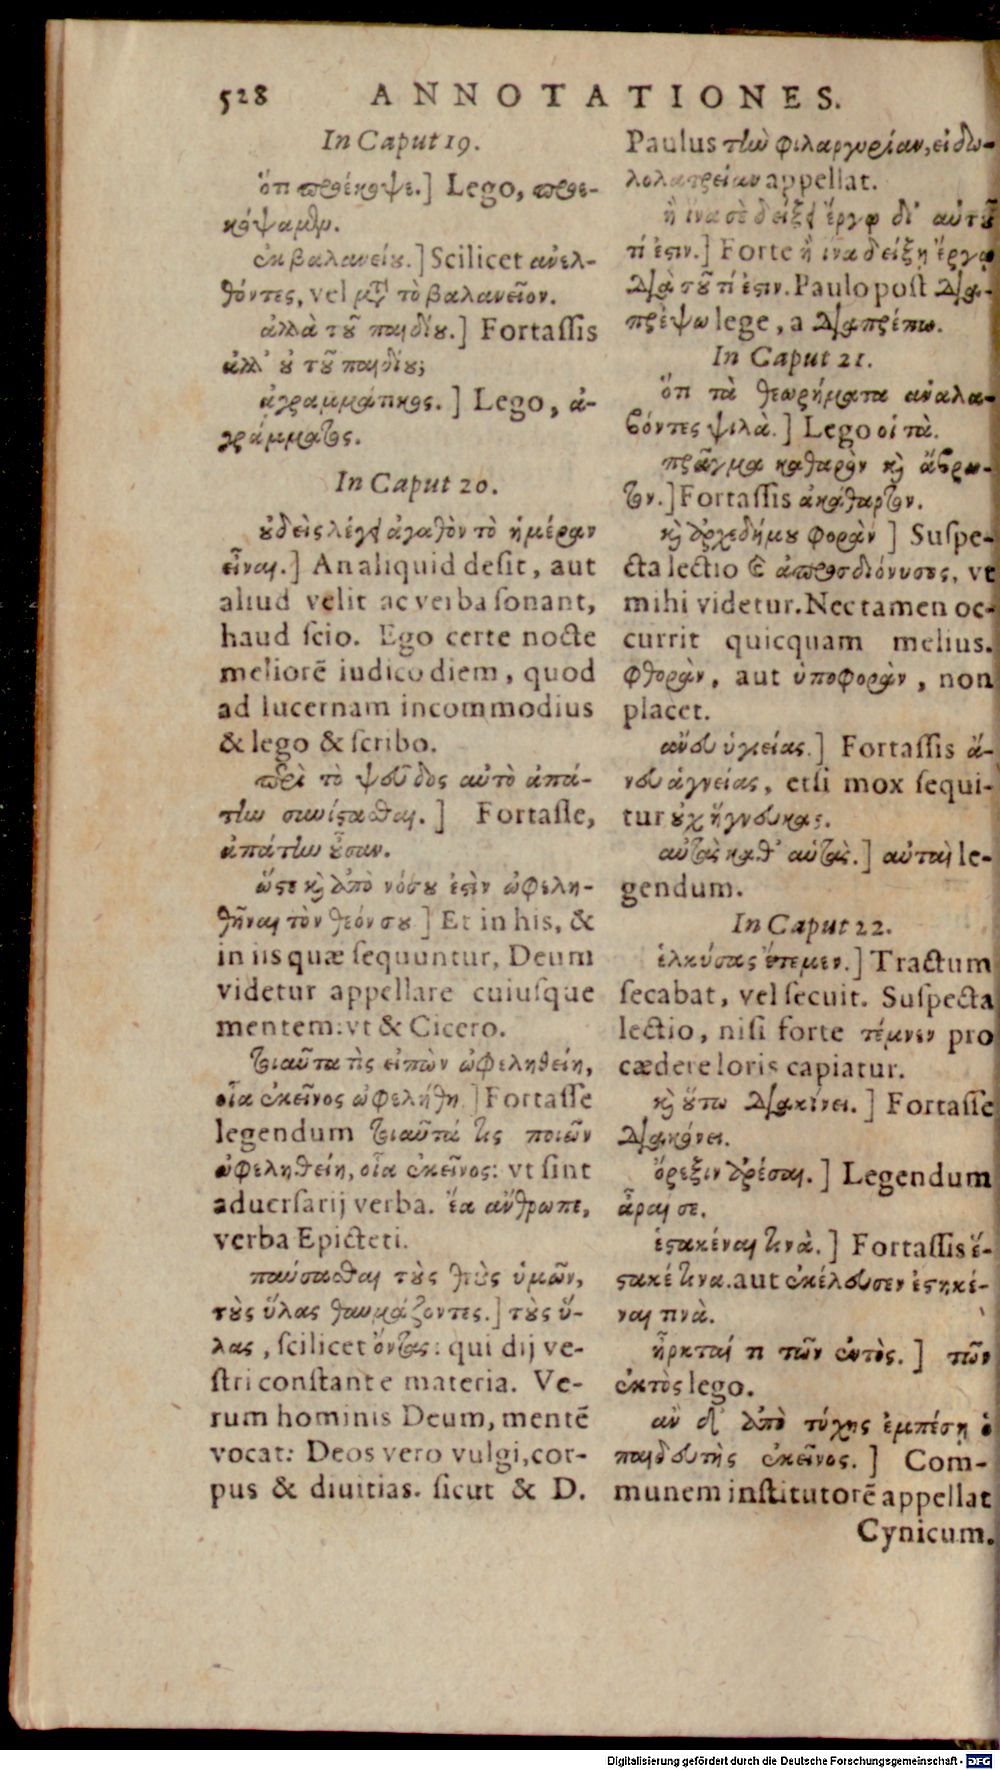 528 ANNOTATIONES.
In Caput 19.
ὅτι προέκοψε.] Lego, προε-
κόψαμεν.
ἐκ βαλανείου.] Scilicet ἀνελ-
θόντες, vel μετὰ τὸ βαλανεῖον.
ἀλλὰ τοῦ παιδίου.] Fortaſſis
ἀλλ' οὐ τοῦ παιδίου;
ἀγραμμάτικος.] Lego, ἀ-
γράμματος.
In Caput 20.
οὐδεὶς λέγει ἀγαθὸν τὸ ἡμέραν
εἶναι.] An aliquid deſit, aut
aliud velit ac verba ſonant,
haud ſcio. Ego certe nocte
meliorē iudico diem, quod
ad lucernam incommodius
& lego & ſcribo.
περὶ τὸ ψεῦδος αὐτὸ ἀπά-
την συνίστασθαι.] Fortaſſe,
ἀπάτην οὖσαν.
ὥστε καὶ ἀπὸ νόσου ἐστὶν ὠφελη-
θῆναι τὸν θεόν σου] Et in his, &
in iis quæ ſequuntur, Deum
videtur appellare cuiuſque
mentem: vt & Cicero.
τοιαῦτα τὶς εἰπὼν ὠφεληθείη,
οἷα ἐκεῖνος ὠφελήθη.] Fortaſſe
legendum τοιαῦτά τις ποιῶν
ὠφεληθείη, οἷα ἐκεῖνος: vt ſint
aduerſarij verba. ἔα ἄνθρωπε,
verba Epicteti.
παύσασθαι τοὺς θεοὺς ὑμῶν,
τοὺς ὕλας θαυμάζοντες.] τοὺς ὕ-
λας, ſcilicet ὄντας: qui dij ve-
ſtri conſtant e materia. Ve-
rum hominis Deum, mentē
vocat: Deos vero vulgi, cor-
pus & diuitias. ſicut & D.
Paulus τὴν φιλαργυρίαν, εἰδω-
λολατρείαν appellat.
ἢ ἵνα σὲ δείξῃ ἔργῳ δι' αὐτοῦ
τί ἐστιν.] Forte ἢ ἵνα δείξῃ ἔργῳ
διὰ τοῦ τί ἐστιν. Paulo poſt δια-
πρέψω lege, a διαπρέπω.
In Caput 21.
ὅτι τὰ θεωρήματα ἀναλα-
βόντες ψιλὰ.] Lego οἱ τὰ.
πρᾶγμα καθαρὸν καὶ ἄβρω-
τον.] Fortaſſis ἀκάθαρτον.
καὶ ἀρχεδήμου φορὰν] Suſpe-
cta lectio & ἀπροσδιόνυσος, vt
mihi videtur. Nec tamen oc-
currit quicquam melius.
φθορὰν, aut ὑποφορὰν, non
placet.
ἄνευ ὑγιείας.] Fortaſſis ἄ-
νευ ἁγνείας, etſi mox ſequi-
tur οὐχ ἥγνευκας.
αὐτὰς καθ' αὑτὰς.] αὐταὶ le-
gendum.
In Caput 22.
ἑλκύσας ἔτεμεν.] Tractum
ſecabat, vel ſecuit. Suſpecta
lectio, niſi forte τέμνειν pro
cædere loris capiatur.
καὶ οὕτω διακίνει.] Fortaſſe
διακόνει.
ὄρεξιν ἀρέσαι.] Legendum
ἆραί σε.
ἑστακέναι τινὰ.] Fortaſſis ἕ-
στακέ τινα. aut ἐκέλευσεν ἑστηκέ-
ναι τινὰ.
ἦρκταί τι τῶν ἐντὸς.] τῶν
ἐκτὸς lego.
ἂν δὲ ἀπὸ τύχης ἐμπέσῃ ὁ
παιδευτὴς ἐκεῖνος.] Com-
munem inſtitutorē appellat
Cynicum.
Digitalisierung gefördert durch die Deutsche Forschungsgemeinschaft - DFG